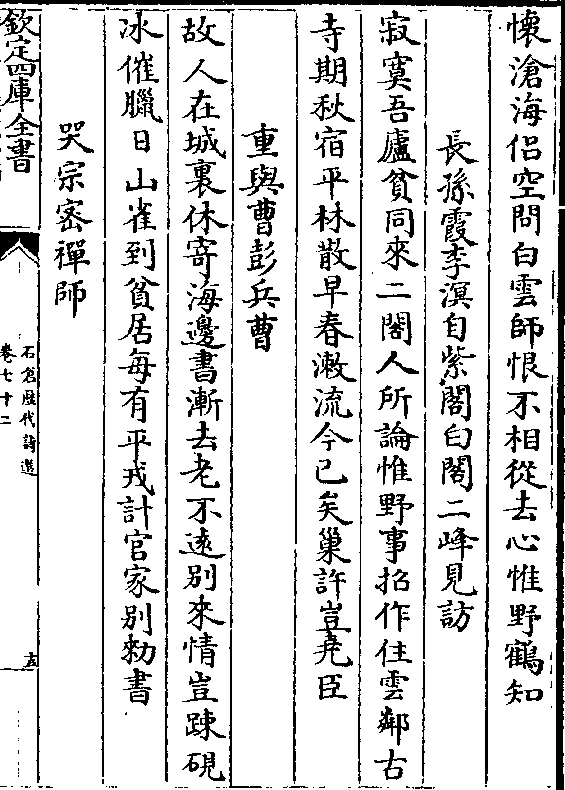 懷滄海侶空問白雲師恨不相從去心惟野鶴知
長孫霞李溟自紫閣白閣二峰見訪
寂寞吾廬貧同來二閣人所論惟野事招作住雲鄰古
寺期秋宿平林散早春漱流今已矣巢許豈堯臣
重與曹彭兵曹
故人在城裏休寄海邊書漸去老不遠別來情豈踈硯
冰催臘日山雀到貧居每有平戎計官家別勑書
哭宗宻禪師
欽定四庫全書
石倉歷代詩選
卷七十二